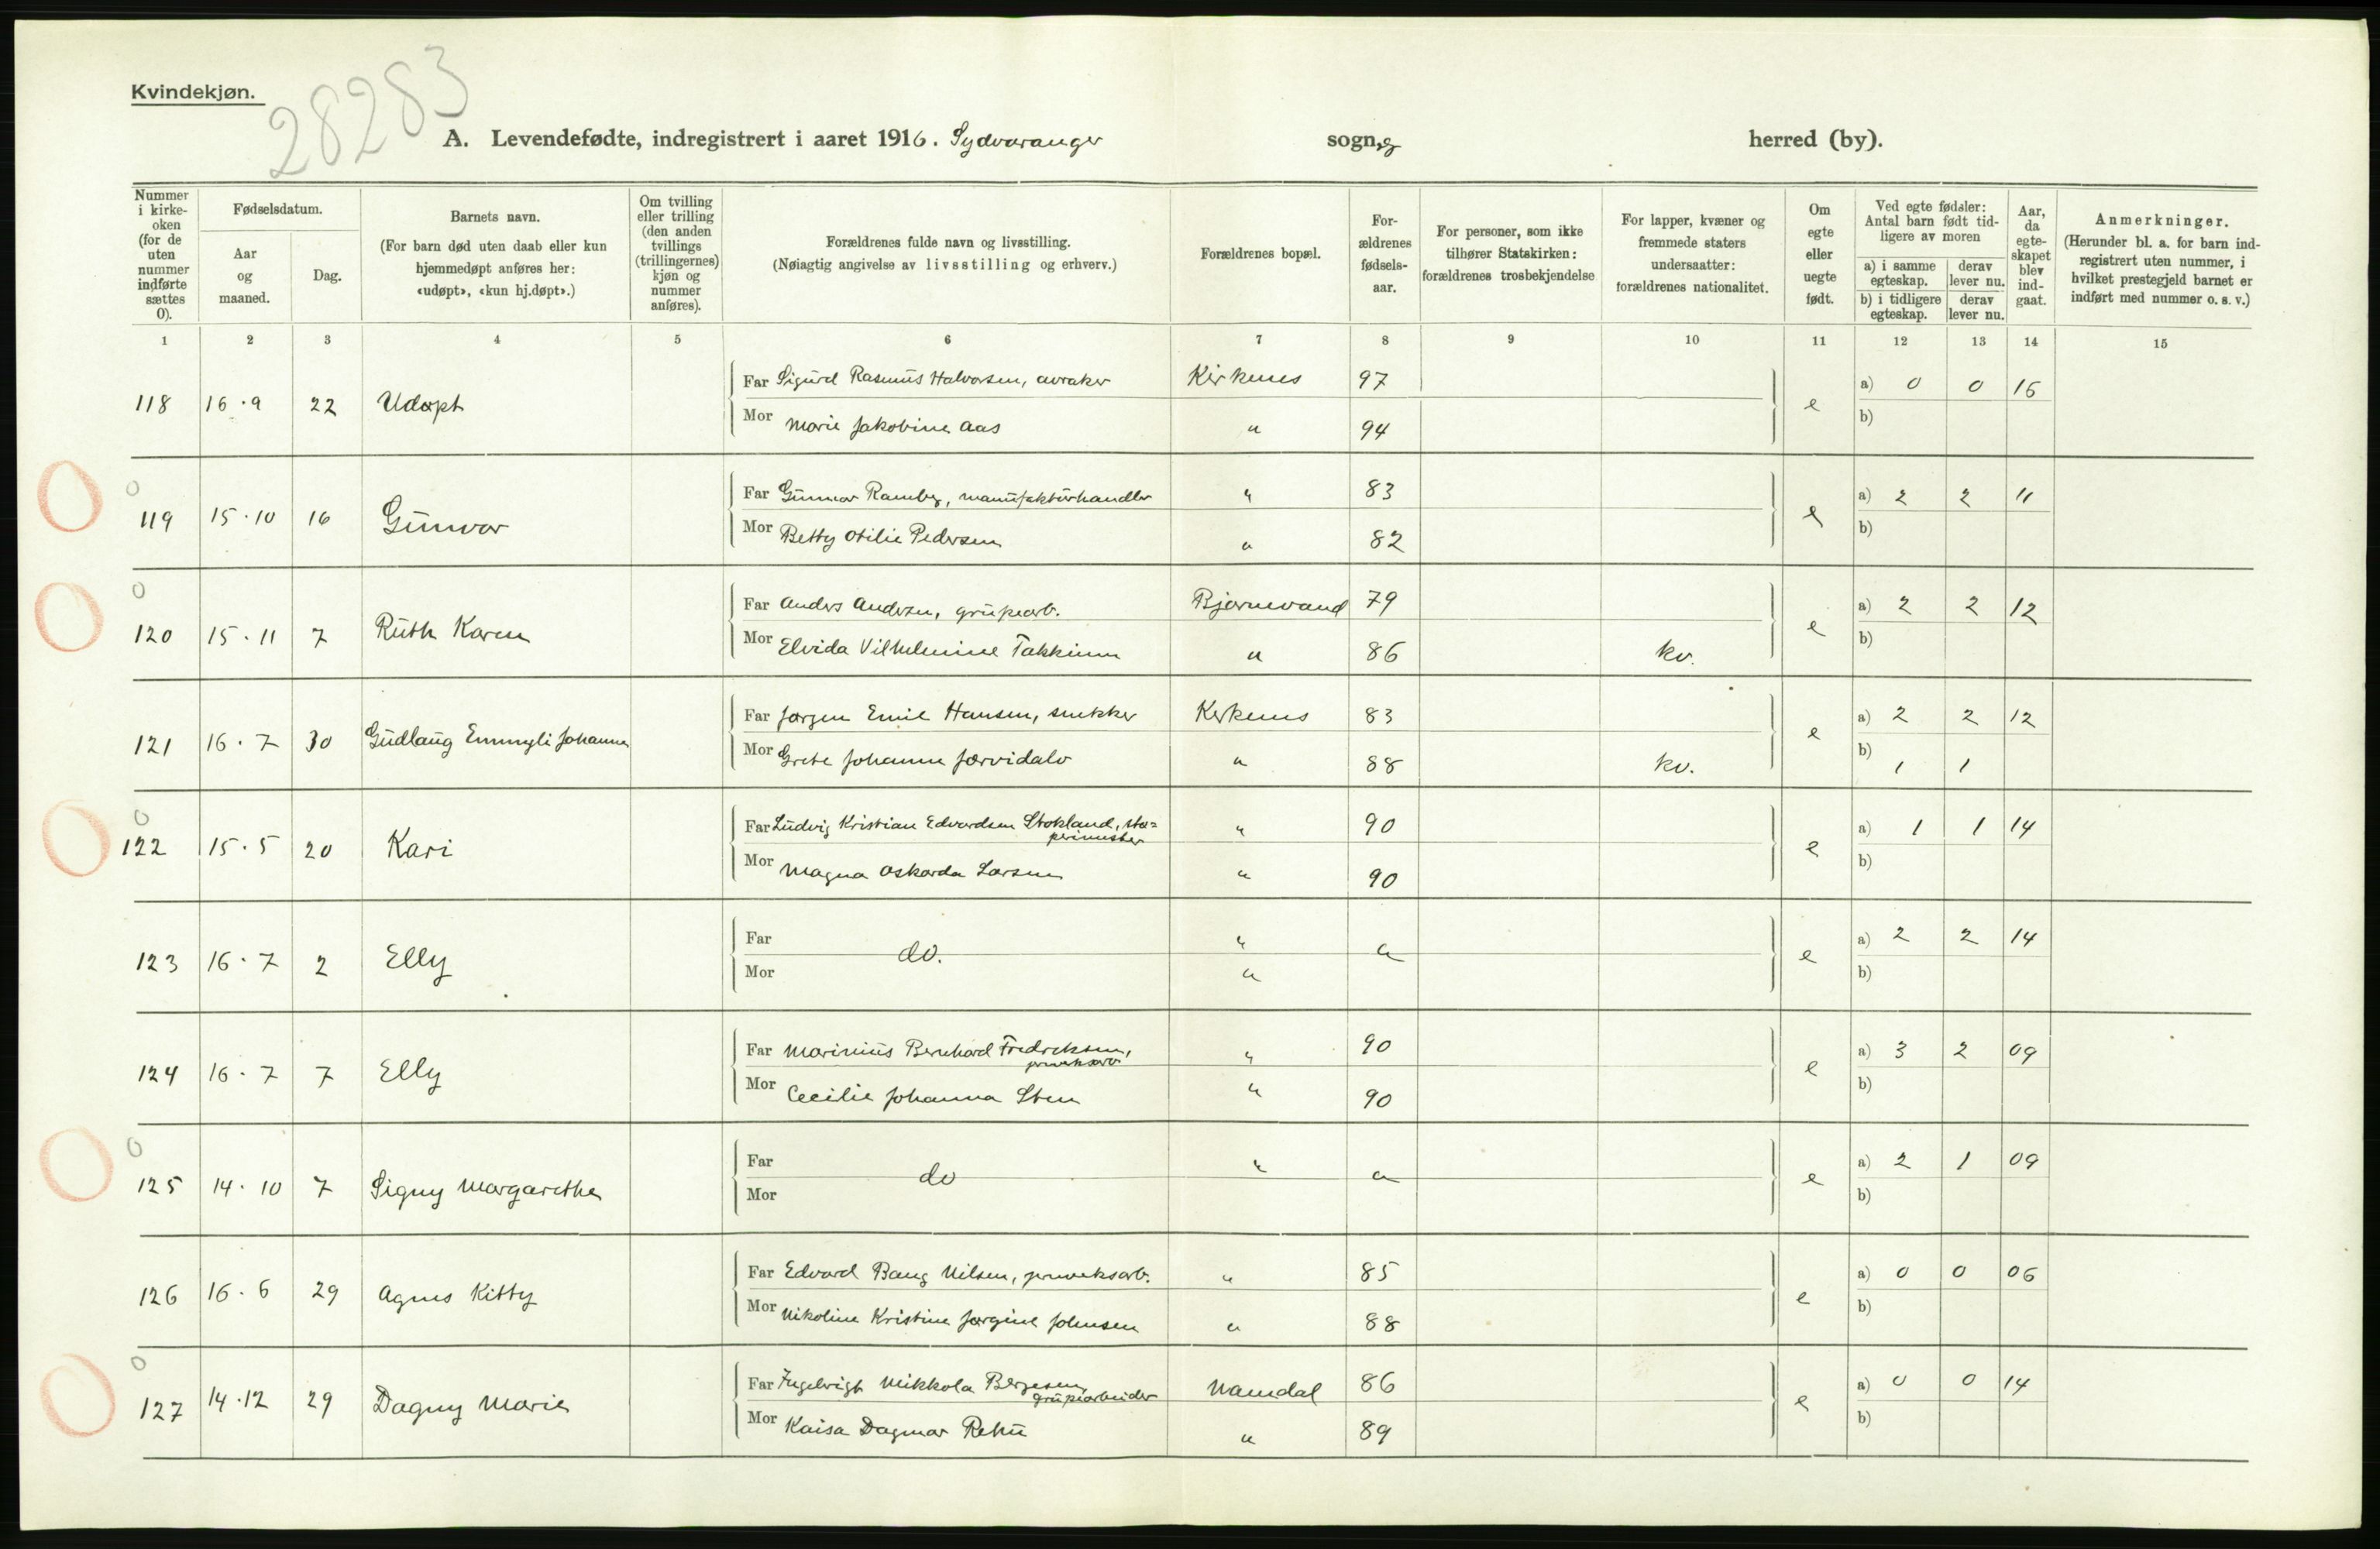 Kvindekjøn.
28283
A. Levendefødte, indregistrert i aaret 1916. Sydvaranger sogn, og herred (by).
Nummer i kirke-oken (for de uten nummer indførte sættes 0).
Fødselsdatum.
Aar og maaned.
Dag.
Barnets navn.
(For barn død uten daab eller kun hjemmedøpt anføres her: «udøpt», «kun hj.døpt».)
Om tvilling eller trilling (den anden tvillings (trillingernes) kjøn og nummer anføres).
Forældrenes fulde navn og livsstilling.
(Nøiagtig angivelse av livsstilling og erhverv.)
Forældrenes bopæl.
For-ældrenes fødsels-aar.
For personer, som ikke tilhører Statskirken: forældrenes trosbekjendelse
For lapper, kvæner og fremmede staters undersaatter: forældrenes nationalitet.
Om egte eller uegte født.
Ved egte fødsler: Antal barn født tid-ligere av moren
a) i samme egteskap.
derav lever nu.
b) i tidligere egteskap.
derav lever nu.
Aar, da egte-skapet blev ind-gaat.
Anmerkninger.
(Herunder bl. a. for barn ind-registrert uten nummer, i hvilket prestegjeld barnet er indført med nummer o. s. v.)
1 2 3 4 5 6 7 8 9 10 11 12 13 14 15
118 16.9 22 Udøpt Far Sigurd Rasmus Halvorsen, avraker Kirkenes 97 e a) 0 0 16
Mor Marie Jakobine Aas " 94 b)
0
119 15.10 16 Gunvor Far Gunnar Ramberg, manufakturhandler " 83 e a) 2 2 11
Mor Betty Otilie Pedersen " 82 b)
0
120 15.11 7 Ruth Karen Far Anders Andersen, grubearb. Bjørnevand 79 e a) 2 2 12
Mor Elvida Vilhelmine Takkinen " 86 kv. b)
121 16.7 30 Gudlaug Emmyli Johanne Far Jørgen Emil Hansen, snekker Kirkenes 83 e a) 2 2 12
Mor Grete Johanne Jærvidalo " 88 kv. b) 1 1
0
122 15.5 20 Kari Far Ludvig Kristian Edvardsen Stokland, " 90 e a) 1 1 14
Mor Magna Oskarda Larsen " 90 b)
123 16.7 2 Elly Far do. " " e a) 2 2 14
Mor " b)
124 16.7 7 Elly Far Marinius Bernhard Fredriksen, " 90 e a) 3 2 09
Mor Cecilie Johanna Sten " 90 b)
0
125 14.10 7 Signy Margarethe Far do " " e a) 2 1 09
Mor b)
126 16.6 29 Agnes Kitty Far Edvard Bang Nilsen, " 85 e a) 0 0 06
Mor Nikoline Kristine Jørgine Johnsen " 88 b)
0
127 14.12 29 Dagny Marie Far Ingebrigt Mikkola Bergesen, 86 e a) 0 0 14
grubearbeider
Mor Kaisa Dagmar Rehu " 89 b)